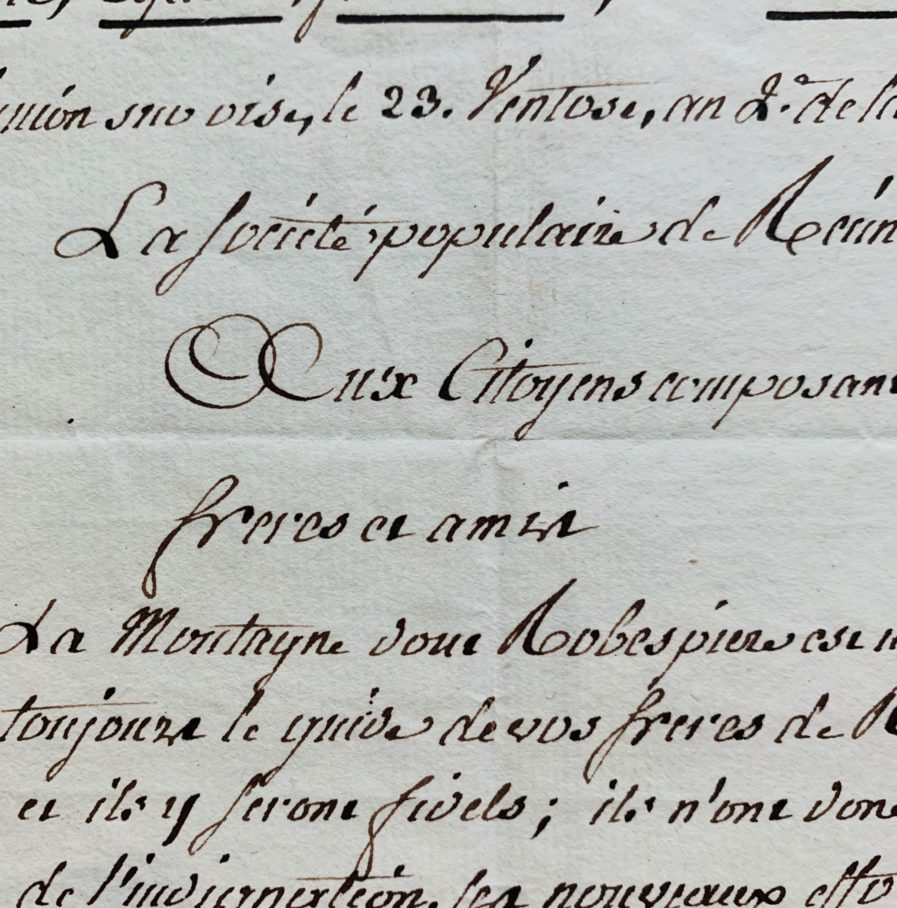 sur oise, le 23. Ventose, an 2.e de la
La société populaire de Réun
Aux Citoyens composant
freres et amis
La Montagne dont Robespierre est
toujours le guide de vos freres de R
et ils y seront fidels ; ils n'ont donc
de l'indignation, les nouveaux effo